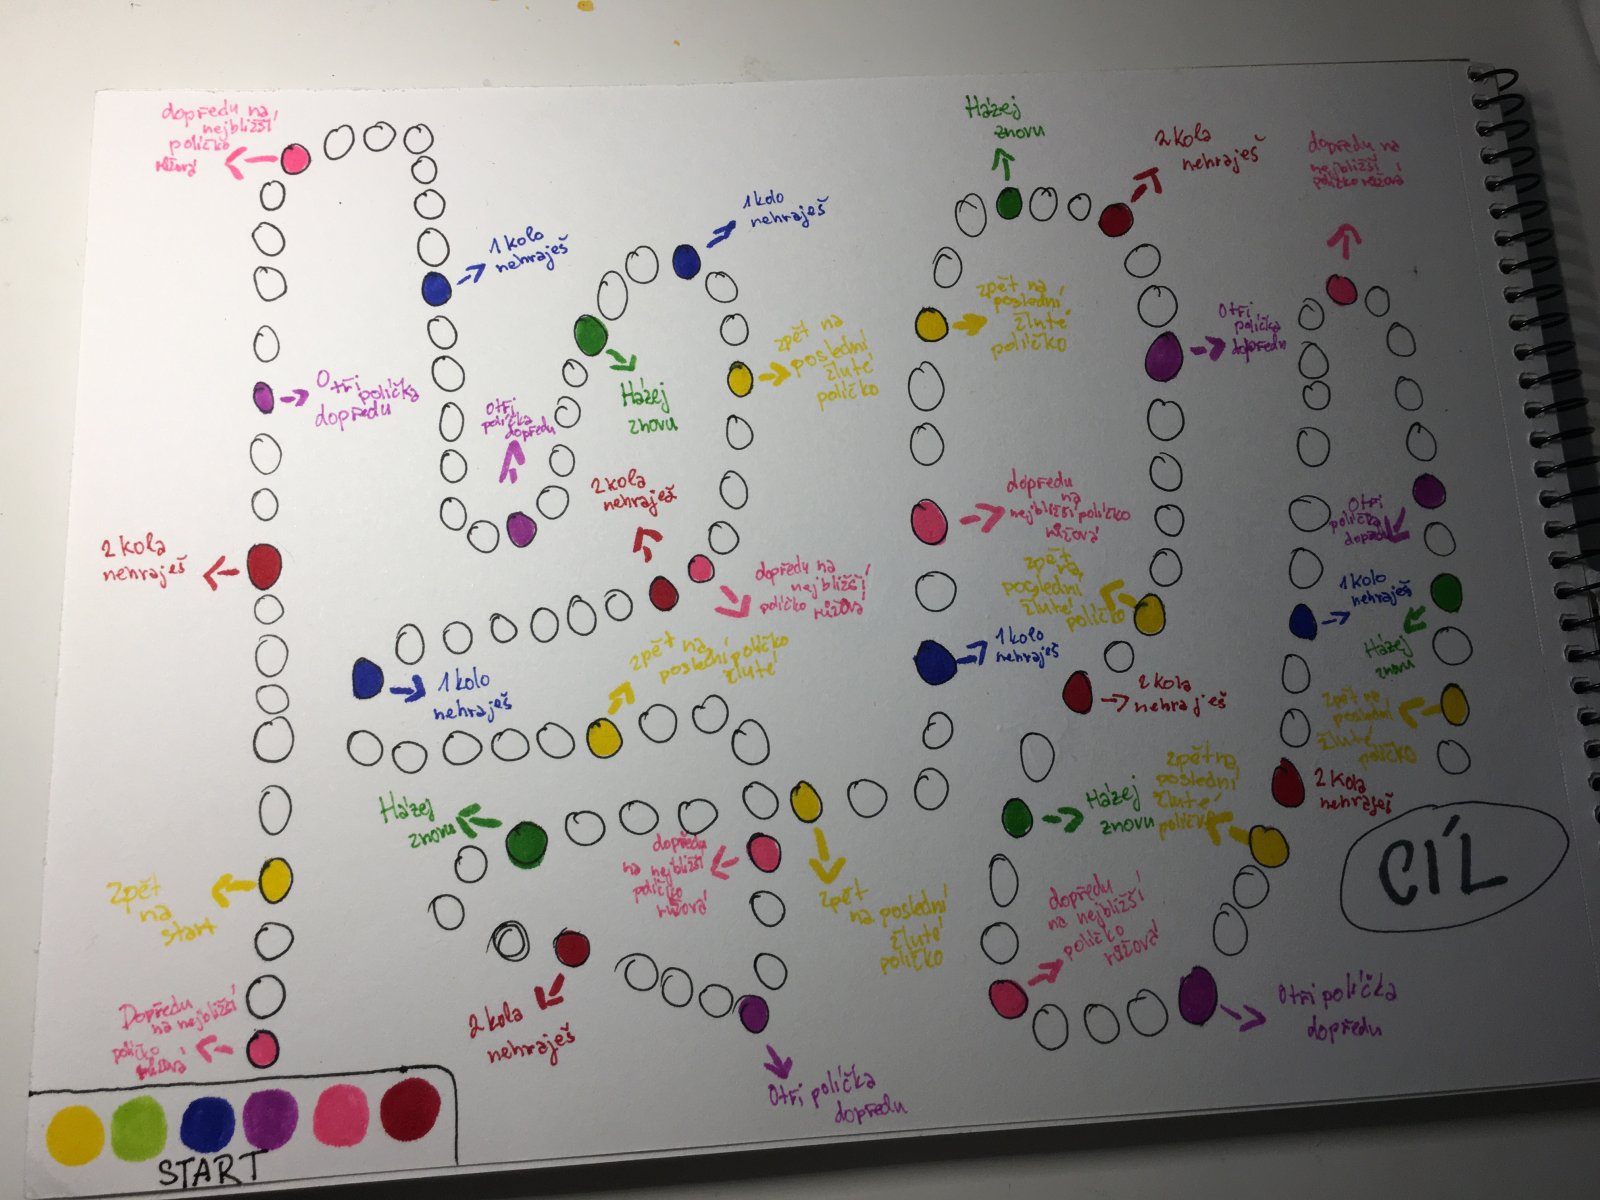 dopředu na
nejbližší
políčko
růžová
Házej
znovu
2 kola
nehraješ
dopředu na
nejbližší
políčko růžová
1 kolo
nehraješ
1 kolo
nehraješ
zpět na
poslední
žluté
políčko
O tři
políčka
dopředu
zpět na
poslední
žluté
políčko
O tři políčka
dopředu
O tři
políčka
dopředu
Házej
znovu
2 kola
nehraješ
dopředu
na
nejbližší políčko
růžová
O tři
políčka
2 kola
nehraješ
dopředu na
nejbližší
políčko růžová
zpět
na
poslední
žluté
políčko
1 kolo
nehraješ
zpět na
poslední políčko
žluté
1 kolo
nehraješ
1 kolo
nehraješ
Házej
znovu
2 kola
nehraješ
zpět na
poslední
žluté
políčko
zpět na
poslední
žluté
políčko
2 kola
nehraješ
Házej
znovu
Házej
znovu
dopředu
na nejbližší
políčko
růžová
CÍL
zpět
na
start
zpět
na poslední
žluté
políčko
dopředu
na nejbližší
políčko
růžová
Dopředu
na nejbližší
políčko
růžová
2 kola
nehraješ
O tři políčka
dopředu
O tři políčka
dopředu
START